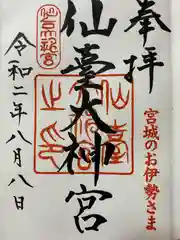 奉拝
宮城のお伊勢さま
仙臺大神宮
令和二年八月八日